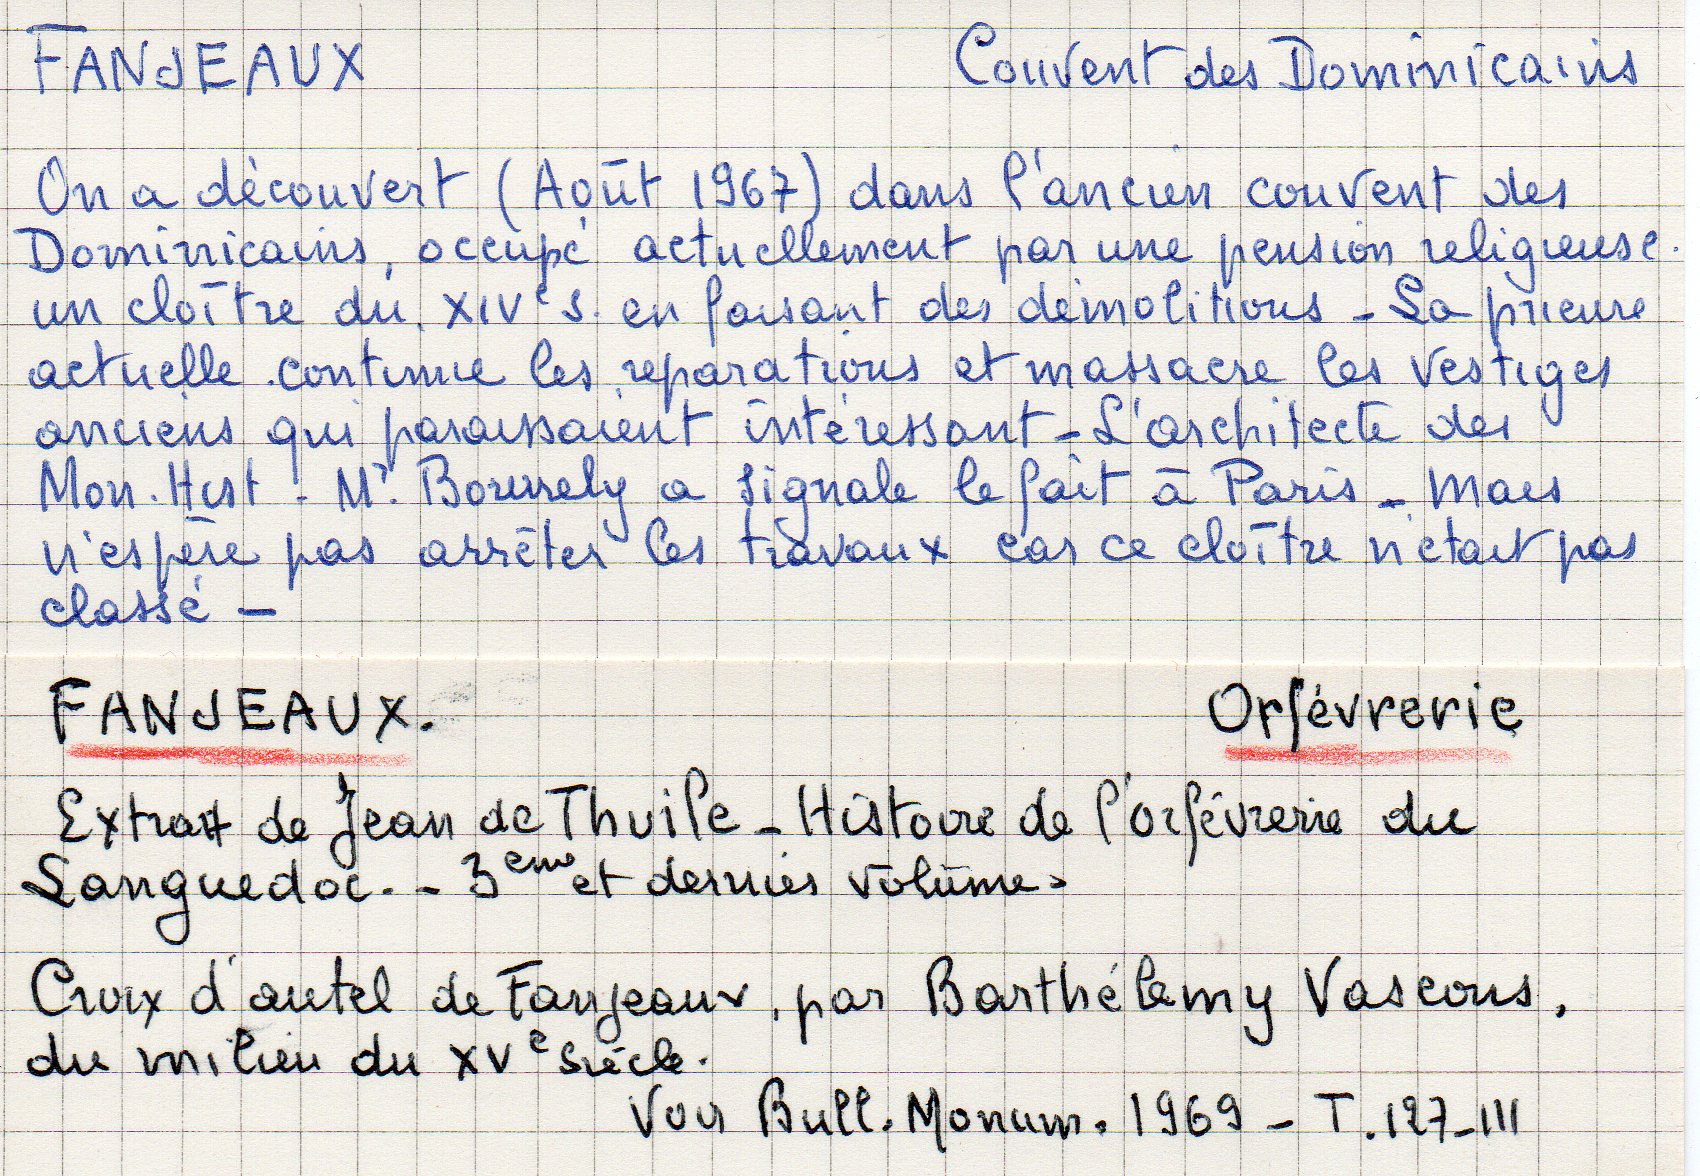 FANJEAUX Couvent des Dominicains
On a découvert (Août 1967) dans l'ancien couvent des
Dominicains, occupé actuellement par une pension religieuse.
un cloître du XIVe s. en faisant des démolitions - La prieure
actuelle continue les réparations et massacre les vestiges
anciens qui paraissaient intéressant - L'architecte des
Mon. Hist - Mr. Bourrely a signalé le fait à Paris - Mais
n'espère pas arrêter les travaux car ce cloître n'était pas
classé -
FANJEAUX. Orfévrerie
Extrait de Jean de Thuile - Histoire de l'orfévrerie du
Languedoc. - 3eme et dernier volume.
Croix d'autel de Fanjeaux, par Barthélemy Vascons,
du milieu du XVe siècle.
Voir Bull. Monum. 1969 - T. 127-III